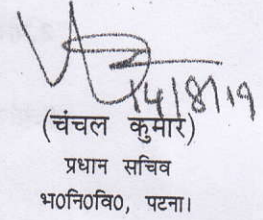 14/8/19
(चंचल कुमार)
प्रधान सचिव
भ०नि०वि०, पटना।